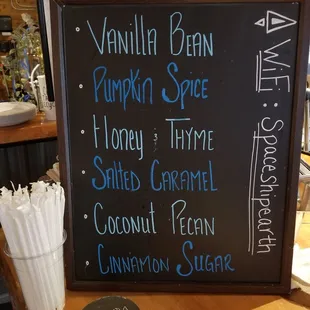 Vanilla Bean
Pumpkin Spice
Honey & Thyme
Salted Caramel
Coconut Pecan
Cinnamon Sugar
WiFi: Spaceshipearth